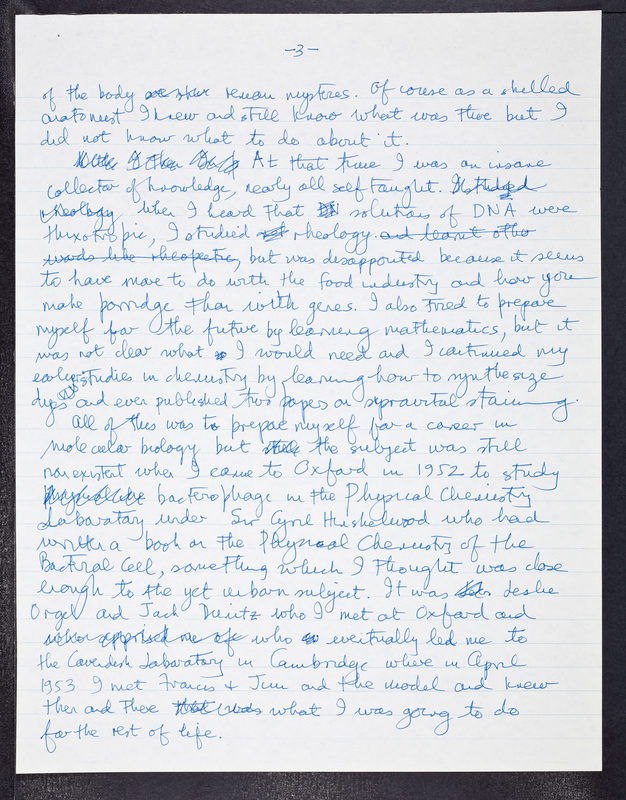 -3-
of the body remain mysteries. Of course as a skilled
anatomist I knew and still know what was there but I
did not know what to do about it.
At that time I was an insane
collector of knowledge, nearly all self taught. I studied
rheology when I heard that solutions of DNA were
thixotropic, I studied rheology and learnt other
words like rheopectic, but was disappointed because it seems
to have more to do with the food industry and how you
make porridge than with genes. I also tried to prepare
myself for the future by learning mathematics, but it
was not clear what I would need and I continued my
earlier studies in chemistry by learning how to synthesize
dyes and even published two papers on supravital staining.
All of this was to prepare myself for a career in
molecular biology but the subject was still
nonexistent when I came to Oxford in 1952 to study
bacteriophage in the Physical Chemistry
Laboratory under Sir Cyril Hinshelwood who had
written a book on the Physical Chemistry of the
Bacterial Cell, something which I thought was close
enough to the yet unborn subject. It was Leslie
Orgel and Jack Dunitz who I met at Oxford and
who apprised me of who eventually led me to
the Cavendish Laboratory in Cambridge where in April
1953 I met Francis + Jim and the model and knew
then and there that was what I was going to do
for the rest of life.